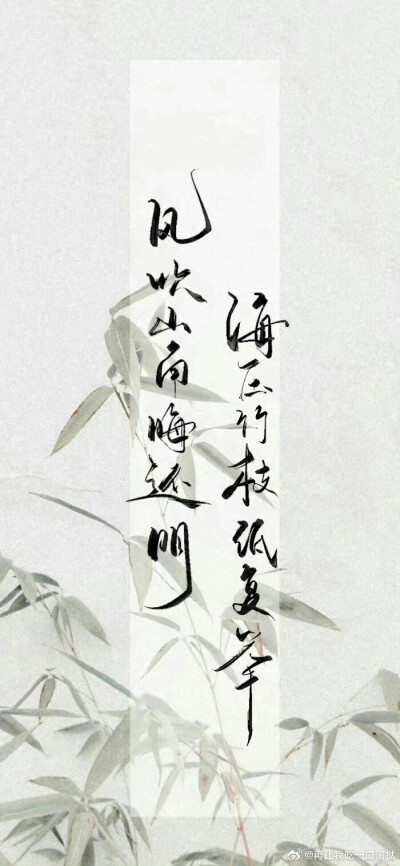 海压竹枝低复举
风吹山角晦还明
@再让我吃一口